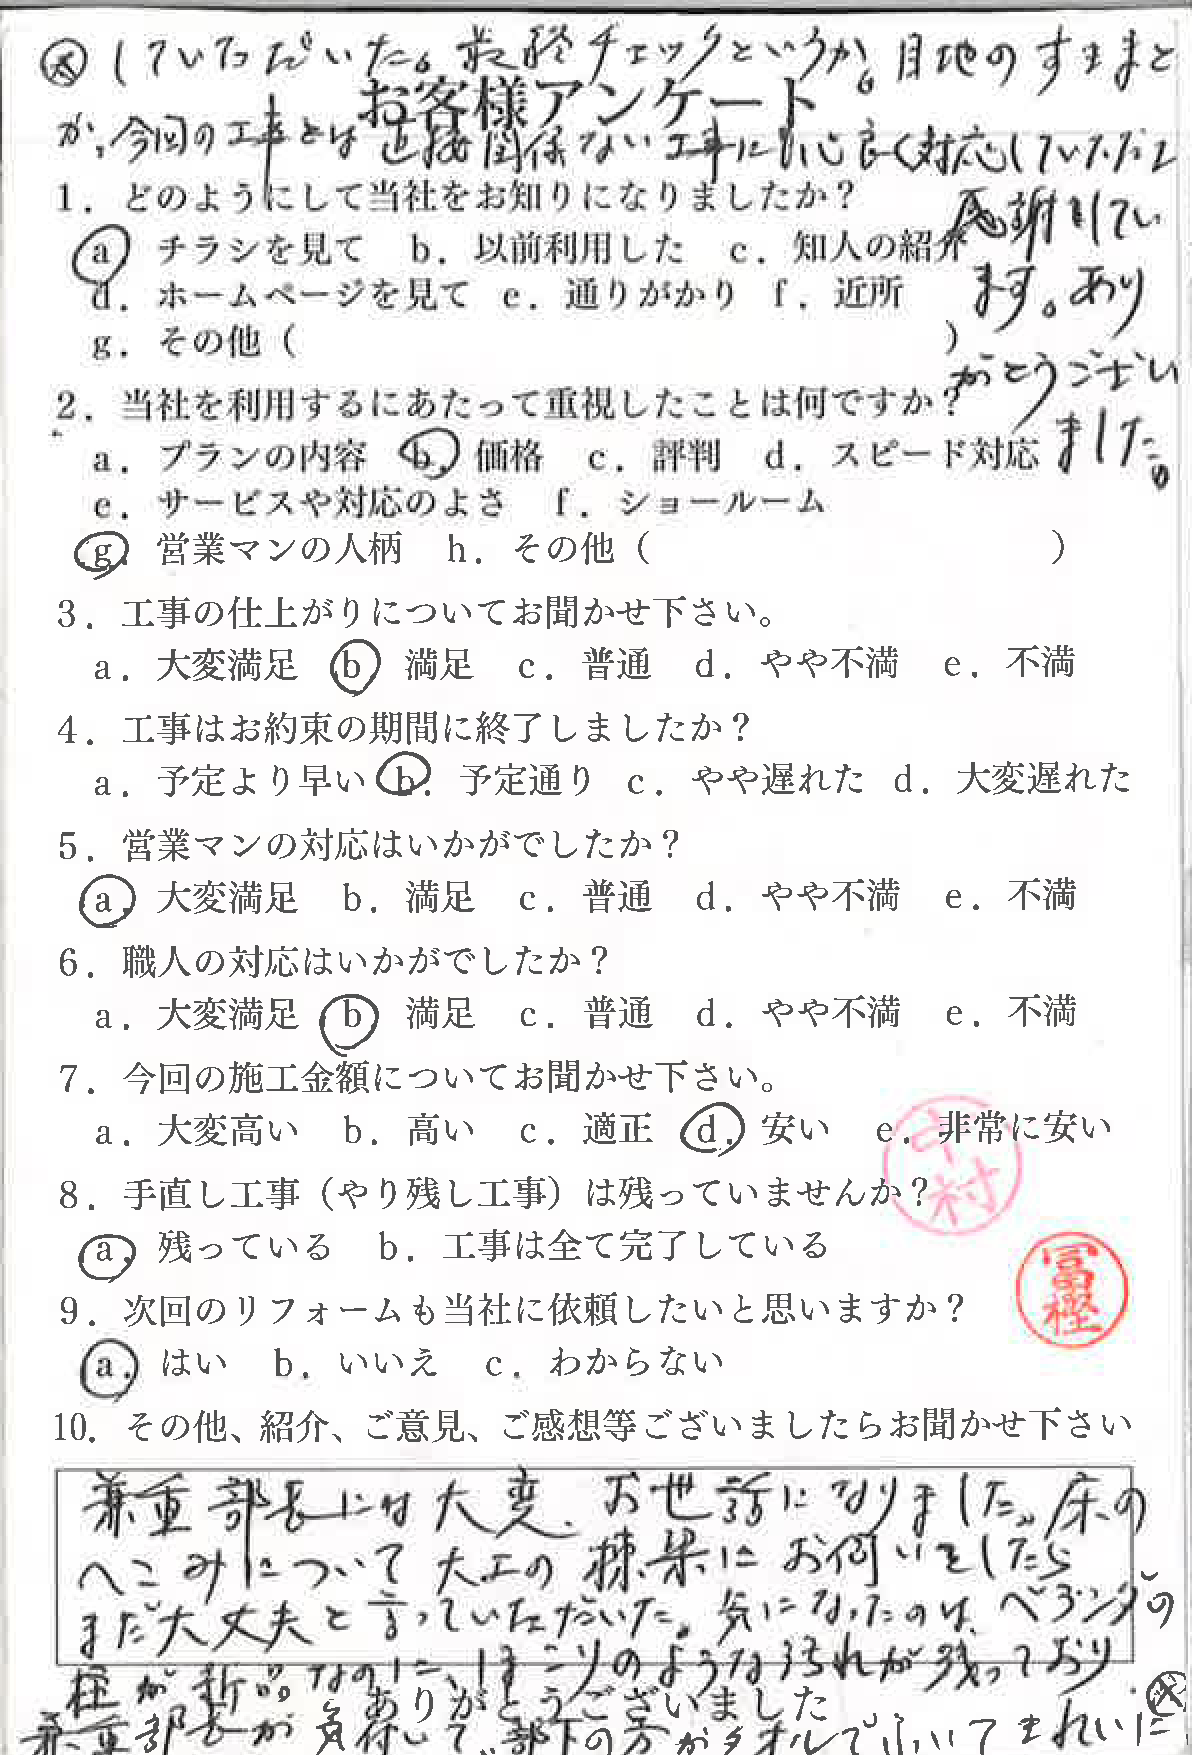 大していただいた。最終チェックというか。目地のすきまと
お客様アンケート
か、今回の工事とは直接関係ない工事にも心良く対応していただいて
感謝してい
ます。あり
がとうござい
ました。
1．どのようにして当社をお知りになりましたか？
a　チラシを見て　b．以前利用した　c．知人の紹介
d．ホームページを見て　e．通りがかり　f．近所
g．その他（　　　　　　　　　　　　）
2．当社を利用するにあたって重視したことは何ですか？
a．プランの内容　b．価格　c．評判　d．スピード対応
e．サービスや対応のよさ　f．ショールーム
g．営業マンの人柄　h．その他（　　　　　　　　　　　　）
3．工事の仕上がりについてお聞かせ下さい。
a．大変満足　b　満足　c．普通　d．やや不満　e．不満
4．工事はお約束の期間に終了しましたか？
a．予定より早い　b．予定通り　c．やや遅れた　d．大変遅れた
5．営業マンの対応はいかがでしたか？
a．大変満足　b．満足　c．普通　d．やや不満　e．不満
6．職人の対応はいかがでしたか？
a．大変満足　b　満足　c．普通　d．やや不満　e．不満
7．今回の施工金額についてお聞かせ下さい。
a．大変高い　b．高い　c．適正　d．安い　e．非常に安い
8．手直し工事（やり残し工事）は残っていませんか？
a．残っている　b．工事は全て完了している
中村
冨樫
9．次回のリフォームも当社に依頼したいと思いますか？
a．はい　b．いいえ　c．わからない
10．その他、紹介、ご意見、ご感想等ございましたらお聞かせ下さい
兼重部長には大変お世話になりました。床の
へこみについて大工の棟梁にお伺いをしたら
まだ大丈夫と言っていただいた。気になったのは、ベランダの
柱が新品なのに、ほこりのような汚れが残っており
ありがとうございました
兼重部長が気付いて、部下の方がタオルでふいてきれいに大